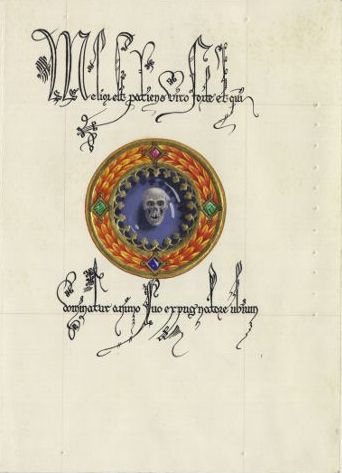 Melior est patiens viro forte et qui
dominatur animo suo expugnatore urbium